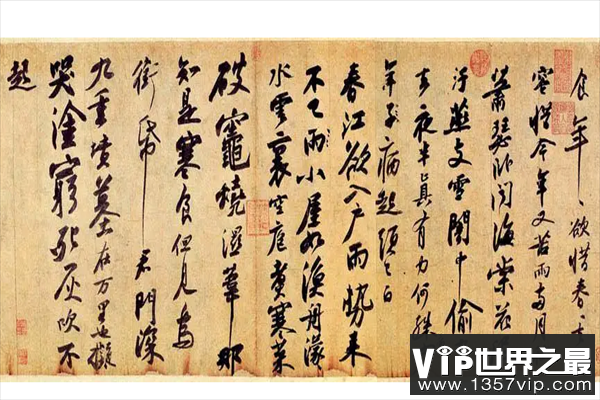 食年〻欲惜春〻去
容惜今年又苦雨兩月
蕭瑟卧聞海棠花
汙燕支雪闇中偷
去夜半真有力何殊
年子病起頭已白
春江欲入戶雨勢來
不已雨小屋如漁舟濛〻
水雲裏空庖煮寒菜
破竈燒濕葦那
知是寒食但見烏
銜帋 君門深
九重墳墓在万里也擬
哭塗窮死灰吹不
起
VIP世界之最
www.1357vip.com